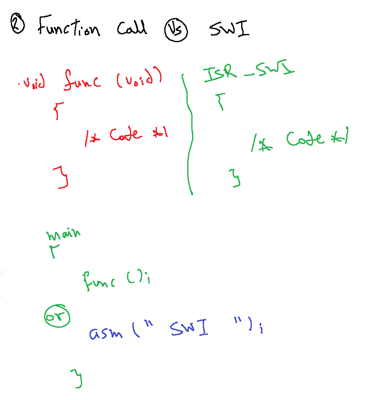 ② Function Call VS SWI
void func (void)
{
/* Code */
}
ISR_SWI
{
/* Code */
}
main
{
func ();
or
asm (" SWI ");
}